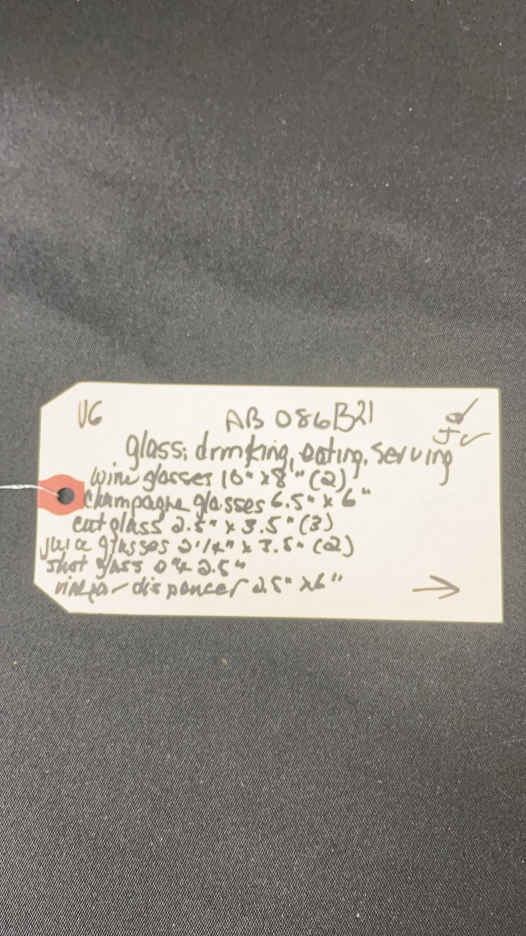 VG
AB 086B21
glass; drinking, eating, serving
wine glasses 10" x 8" (2)
champagne glasses 6.5" x 6"
cut glass 2.5" x 3.5" (3)
glasses 2 1/4" x 3.5" (2)
shot glass 2.5"
dispencer 2.5" x 6"